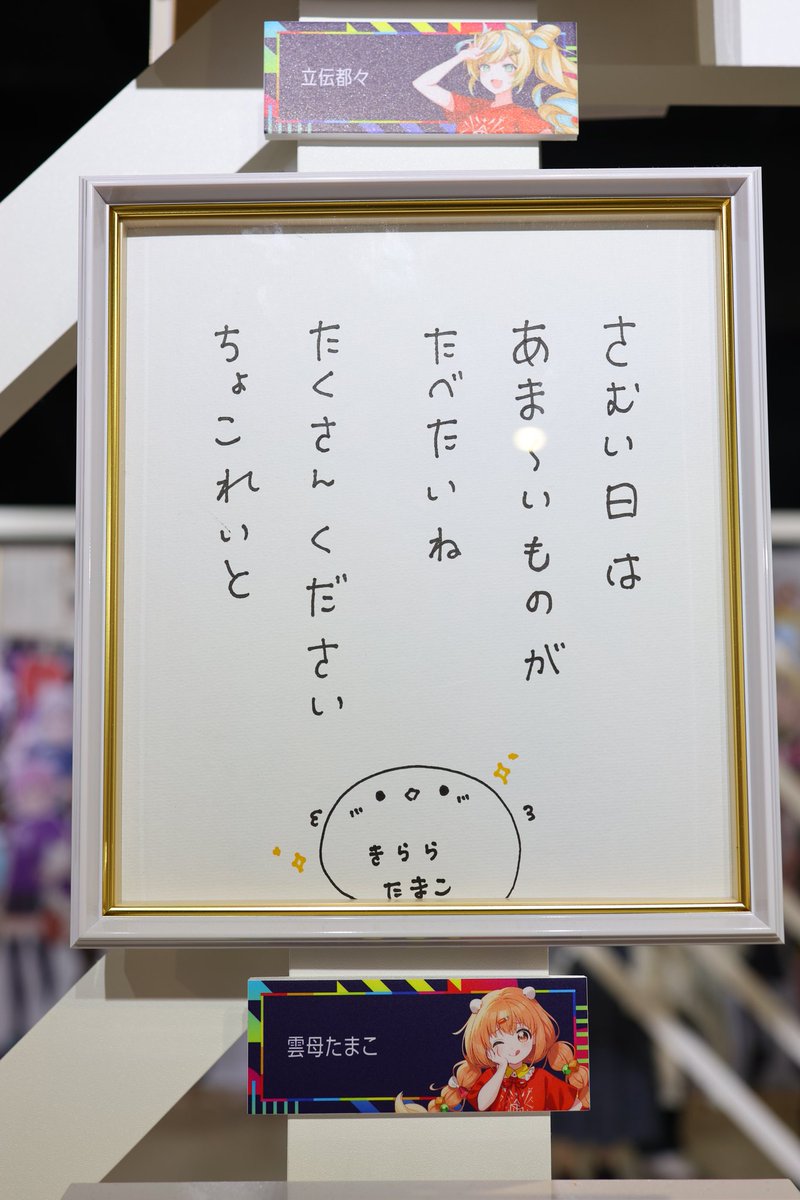 立伝都々
さむい日は
あま〜いものが
たべたいね
たくさんください
ちょこれいと
きらら
たまこ
雲母たまこ